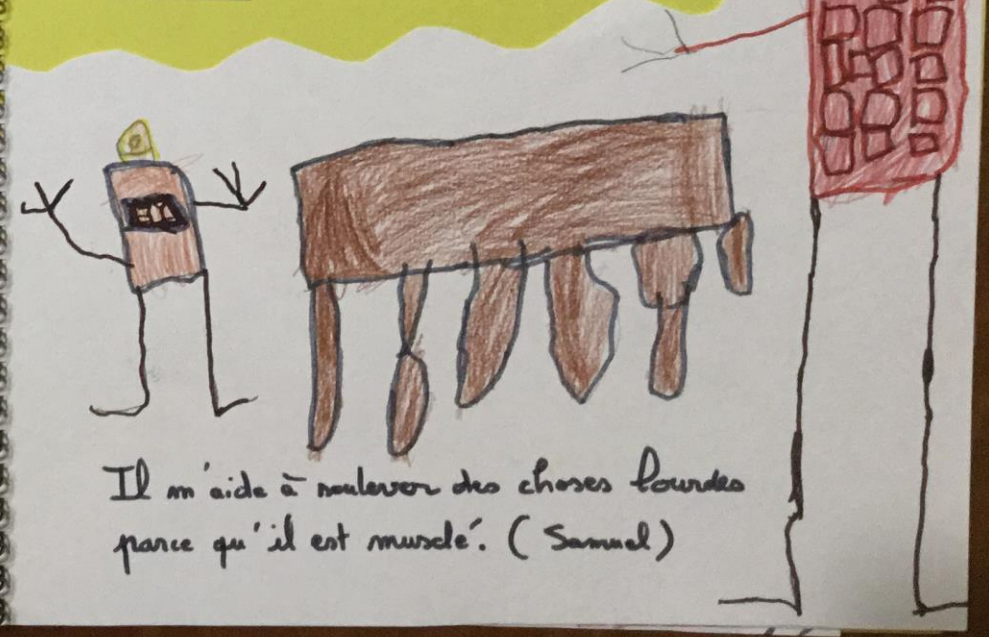 Il m'aide à soulever des choses lourdes
parce qu'il est musclé. (Samuel)